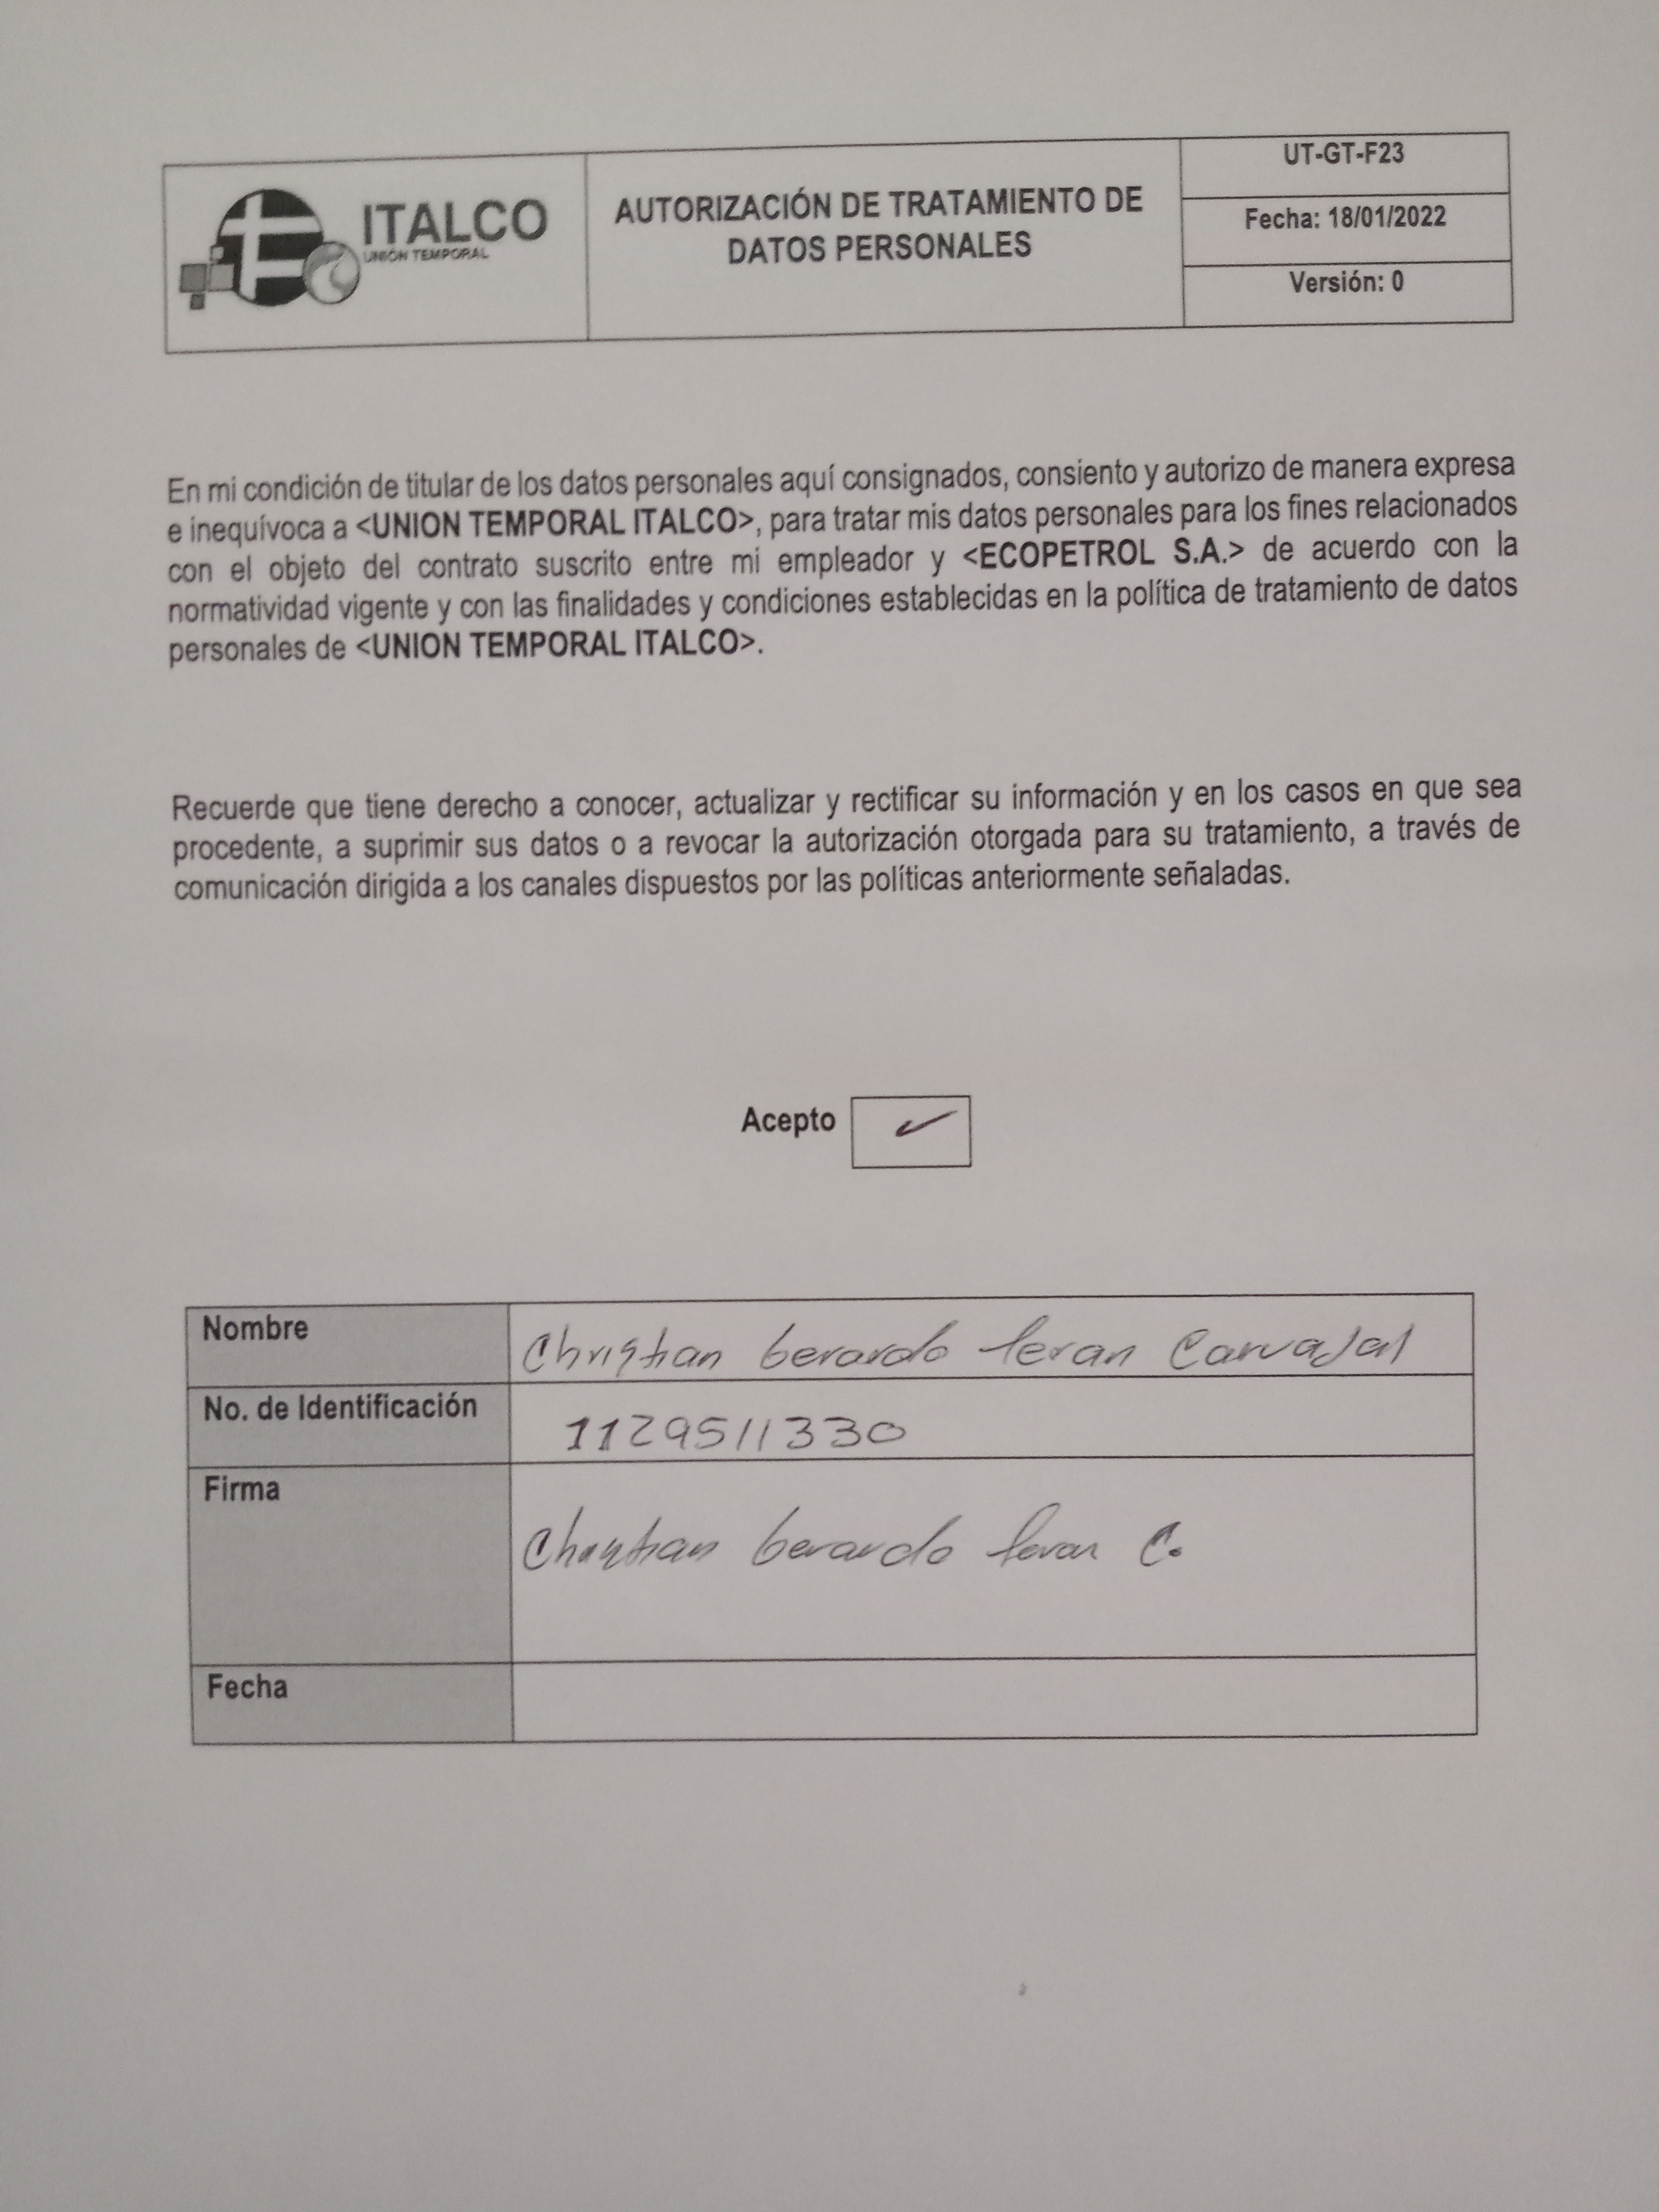 ITALCO
UNIÓN TEMPORAL
AUTORIZACIÓN DE TRATAMIENTO DE
DATOS PERSONALES
UT-GT-F23
Fecha: 18/01/2022
Versión: 0
En mi condición de titular de los datos personales aquí consignados, consiento y autorizo de manera expresa
e inequívoca a <UNION TEMPORAL ITALCO>, para tratar mis datos personales para los fines relacionados
con el objeto del contrato suscrito entre mi empleador y <ECOPETROL S.A.> de acuerdo con la
normatividad vigente y con las finalidades y condiciones establecidas en la política de tratamiento de datos
personales de <UNION TEMPORAL ITALCO>.
Recuerde que tiene derecho a conocer, actualizar y rectificar su información y en los casos en que sea
procedente, a suprimir sus datos o a revocar la autorización otorgada para su tratamiento, a través de
comunicación dirigida a los canales dispuestos por las políticas anteriormente señaladas.
Acepto ✓
Nombre Christian Gerardo Teran Carvajal
No. de Identificación 1129511330
Firma Christian Gerardo Teran C.
Fecha